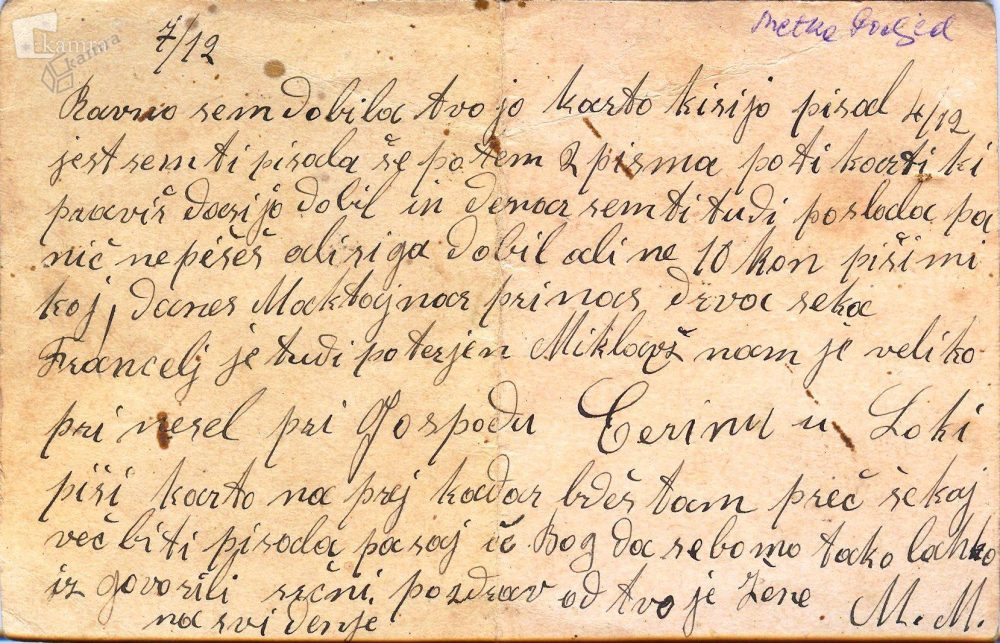 kamra
kamra
Metka
7/12
Ravno sem dobila tvojo karto kisijo pisal 4/12
jest sem ti pisala še potem 2 pisma poti karti ki
praviš dasijo dobil in denar sem ti tudi poslala pa
nič nepišeš ali siga dobil ali ne 10 kon piši mi
koj, danes Maktajnar pri nas drva seka
Francelj je tudi poterjen Miklavž nam je veliko
pri nesel pri Gospodu Cerinu u Loki
piši karto na prej kadar bdeš tam preč še kaj
več biti pisala pa saj če Bog da se bomo tako lahko
iz govorili srčni pozdrav od tvoje Žene
na svidenje M. M.